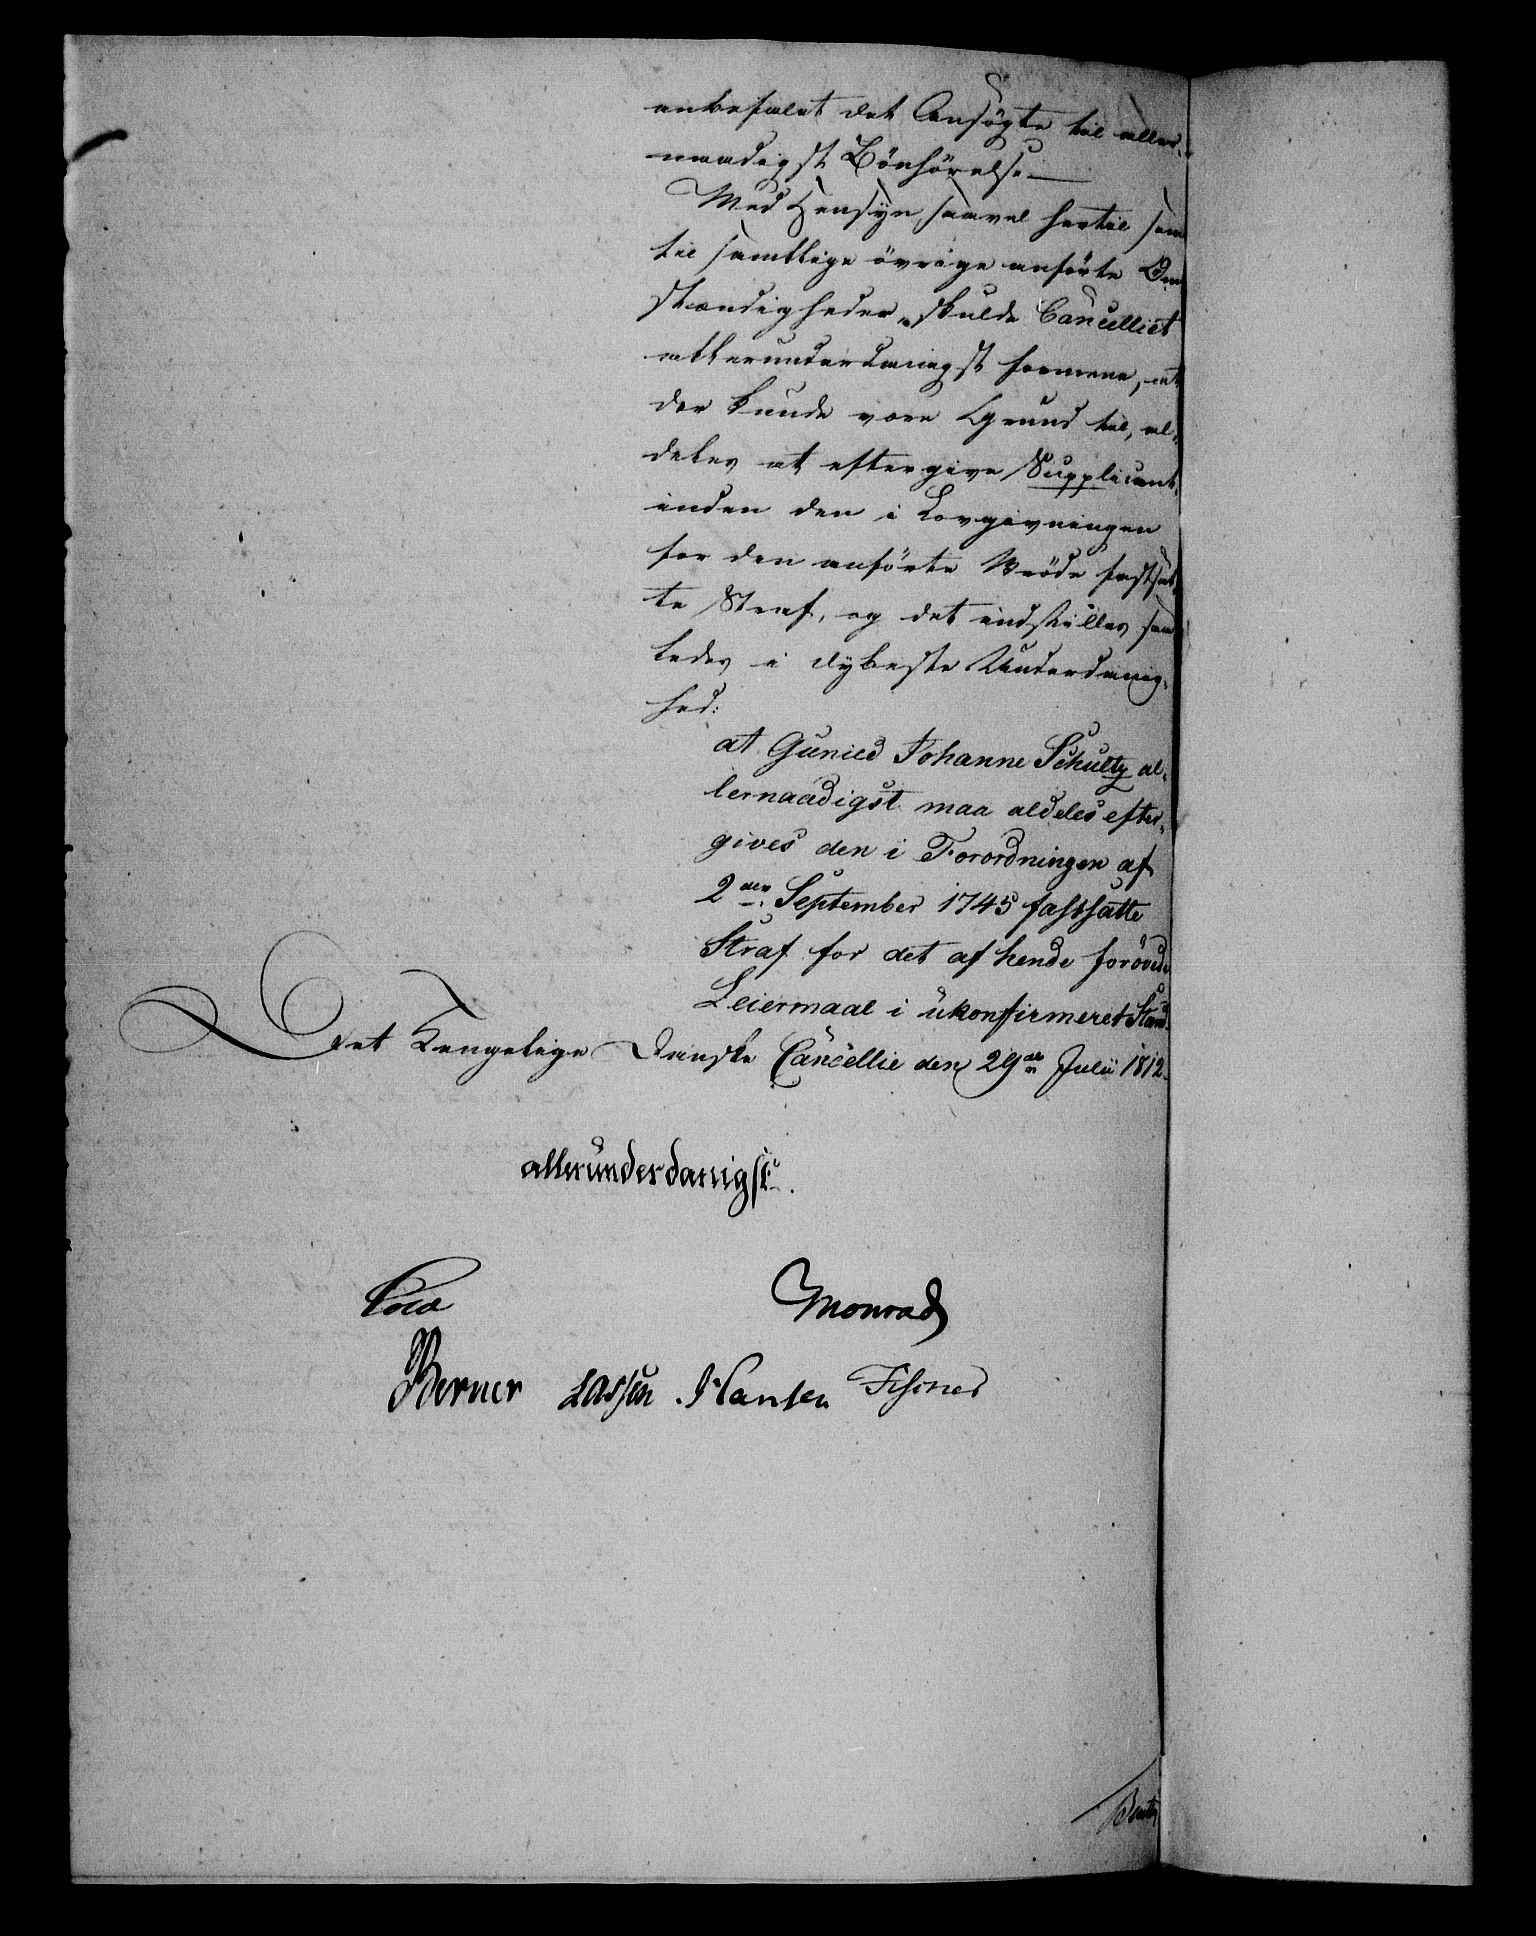 anbefalet det Ansögte til aller-
naadigst Bönhörelse. —
Med Hensyn saavel hertil som
til samtlige övrige anförte Om
stændigheder, skulde Cancelliet
allerunderdanigst formene, at
der kunde være Grund til, al-
deles at eftergive Supplicant-
inden den i Lovgivningen
for den anförte Bröde fastsat
te Straf, og det indstilles saa
ledes i dybeste Underdanig-
hed:
at Gunild Johanne Schultz al-
lernaadigst maa aldeles efter-
gives den i Forordningen af
2den September 1745 fastsatte
Straf for det af hende forövede
Leiermaal i ukonfirmeret Stand.
Det Kongelige Danske Cancellie den 29de Julii 1812.
allerunderdanigst.
Cold Monrad
Berner Lassen Hansen